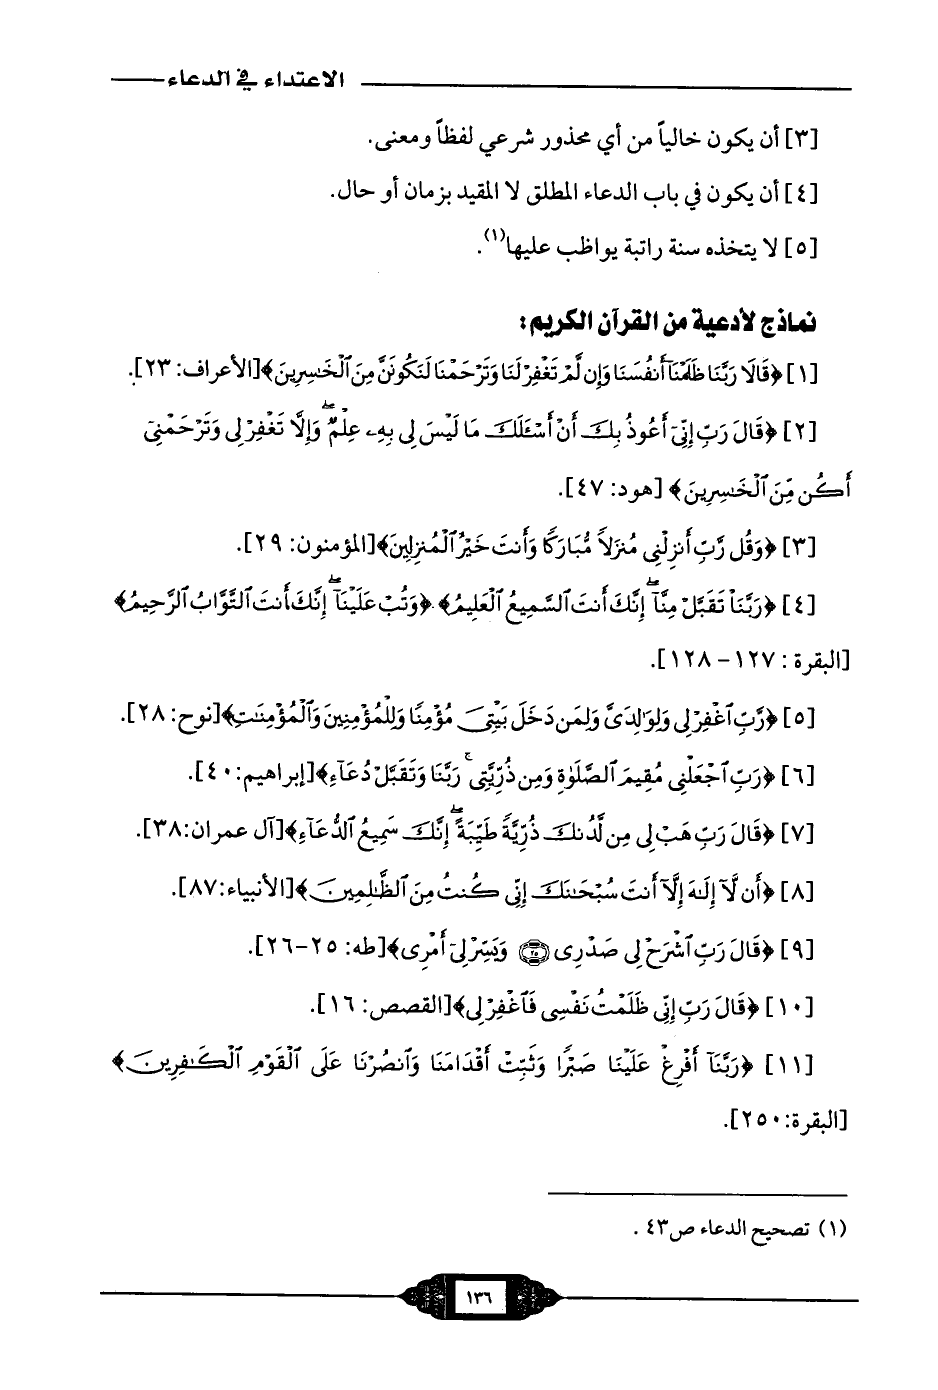 الاعتداء في الدعاء
[٣] أن يكون خالياً من أي محذور شرعي لفظاً ومعنى.
[٤] أن يكون في باب الدعاء المطلق لا المقيد بزمان أو حال.
[٥] لا يتخذه سنة راتبة يواظب عليها(١).
نماذج لأدعية من القرآن الكريم:
[١] ﴿قَالَا رَبَّنَا ظَلَمْنَآ أَنفُسَنَا وَإِن لَّمْ تَغْفِرْ لَنَا وَتَرْحَمْنَا لَنَكُونَنَّ مِنَ ٱلْخَٰسِرِينَ﴾[الأعراف: ٢٣].
[٢] ﴿قَالَ رَبِّ إِنِّيٓ أَعُوذُ بِكَ أَنْ أَسْـَٔلَكَ مَا لَيْسَ لِي بِهِۦ عِلْمٌۖ وَإِلَّا تَغْفِرْ لِي وَتَرْحَمْنِيٓ
أَكُن مِّنَ ٱلْخَٰسِرِينَ﴾ [هود: ٤٧].
[٣] ﴿وَقُل رَّبِّ أَنزِلْنِي مُنزَلًا مُّبَارَكًا وَأَنتَ خَيْرُ ٱلْمُنزِلِينَ﴾[المؤمنون: ٢٩].
[٤] ﴿رَبَّنَا تَقَبَّلْ مِنَّآۖ إِنَّكَ أَنتَ ٱلسَّمِيعُ ٱلْعَلِيمُ﴾ ﴿وَتُبْ عَلَيْنَآۖ إِنَّكَ أَنتَ ٱلتَّوَّابُ ٱلرَّحِيمُ﴾
[البقرة : ١٢٧ – ١٢٨].
[٥] ﴿رَّبِّ ٱغْفِرْ لِي وَلِوَٰلِدَيَّ وَلِمَن دَخَلَ بَيْتِيَ مُؤْمِنًا وَلِلْمُؤْمِنِينَ وَٱلْمُؤْمِنَٰتِ﴾[نوح: ٢٨].
[٦] ﴿رَبِّ ٱجْعَلْنِي مُقِيمَ ٱلصَّلَوٰةِ وَمِن ذُرِّيَّتِيۚ رَبَّنَا وَتَقَبَّلْ دُعَآءِ﴾[إبراهيم: ٤٠].
[٧] ﴿قَالَ رَبِّ هَبْ لِي مِن لَّدُنكَ ذُرِّيَّةً طَيِّبَةًۖ إِنَّكَ سَمِيعُ ٱلدُّعَآءِ﴾[آل عمران:٣٨].
[٨] ﴿أَن لَّآ إِلَٰهَ إِلَّآ أَنتَ سُبْحَٰنَكَ إِنِّي كُنتُ مِنَ ٱلظَّٰلِمِينَ﴾[الأنبياء:٨٧].
[٩] ﴿قَالَ رَبِّ ٱشْرَحْ لِي صَدْرِي ۝٢٥ وَيَسِّرْ لِيٓ أَمْرِي﴾[طه: ٢٥-٢٦].
[١٠] ﴿قَالَ رَبِّ إِنِّي ظَلَمْتُ نَفْسِي فَٱغْفِرْ لِي﴾[القصص: ١٦].
[١١] ﴿رَبَّنَآ أَفْرِغْ عَلَيْنَا صَبْرًا وَثَبِّتْ أَقْدَامَنَا وَٱنصُرْنَا عَلَى ٱلْقَوْمِ ٱلْكَٰفِرِينَ﴾
[البقرة: ٢٥٠].
(١) تصحيح الدعاء ص٤٣ .
١٣٦